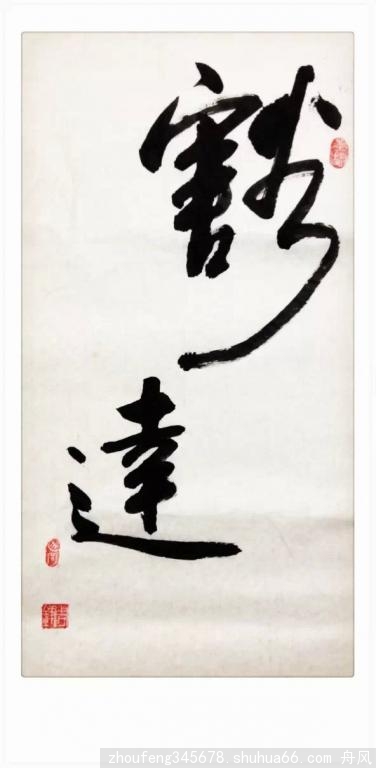 豁
達
zhoufeng345678.shuhua66.com 舟风